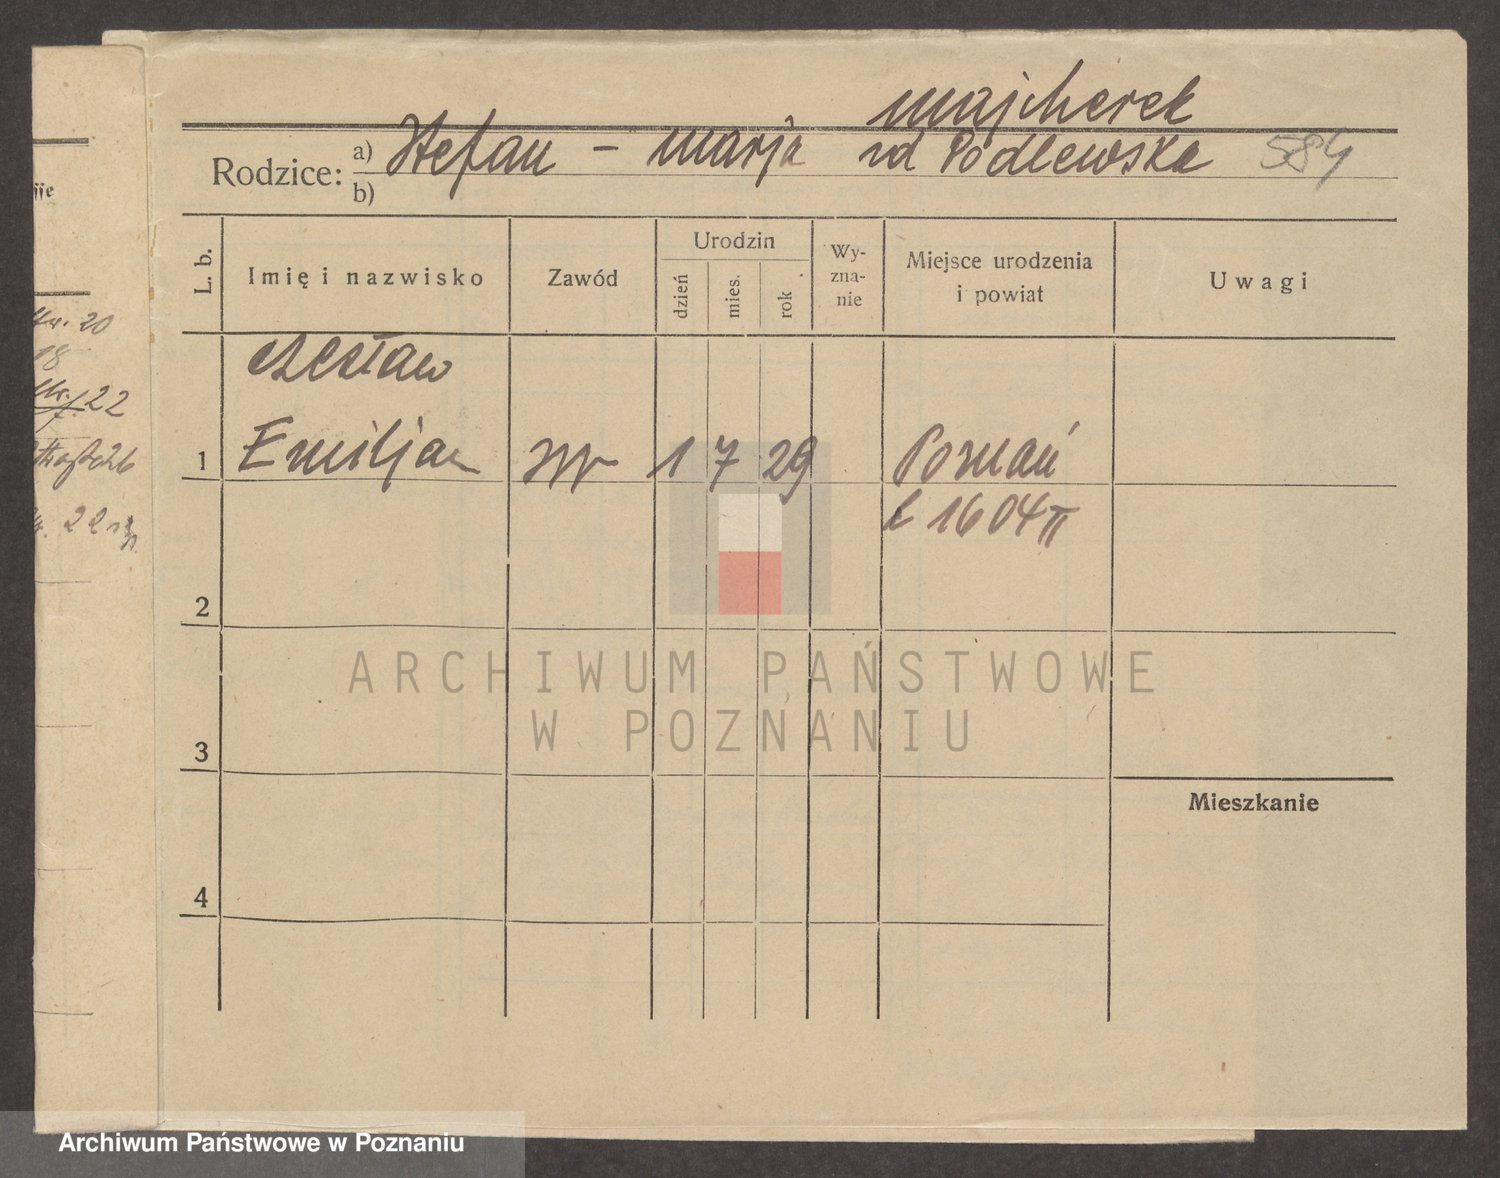 majcherek
Rodzice: a) Stefan - marja zd Podlewska 584
b)
L. b.
Imię i nazwisko
Zawód
Urodzin
dzień
mies.
rok
Wy-
zna-
nie
Miejsce urodzenia
i powiat
Uwagi
czesław
1 Emiljan 1 7 29 Poznań
1604 II
2
3
4
Mieszkanie
20
18
22
22
ARCHIWUM PAŃSTWOWE
W POZNANIU
Archiwum Państwowe w Poznaniu